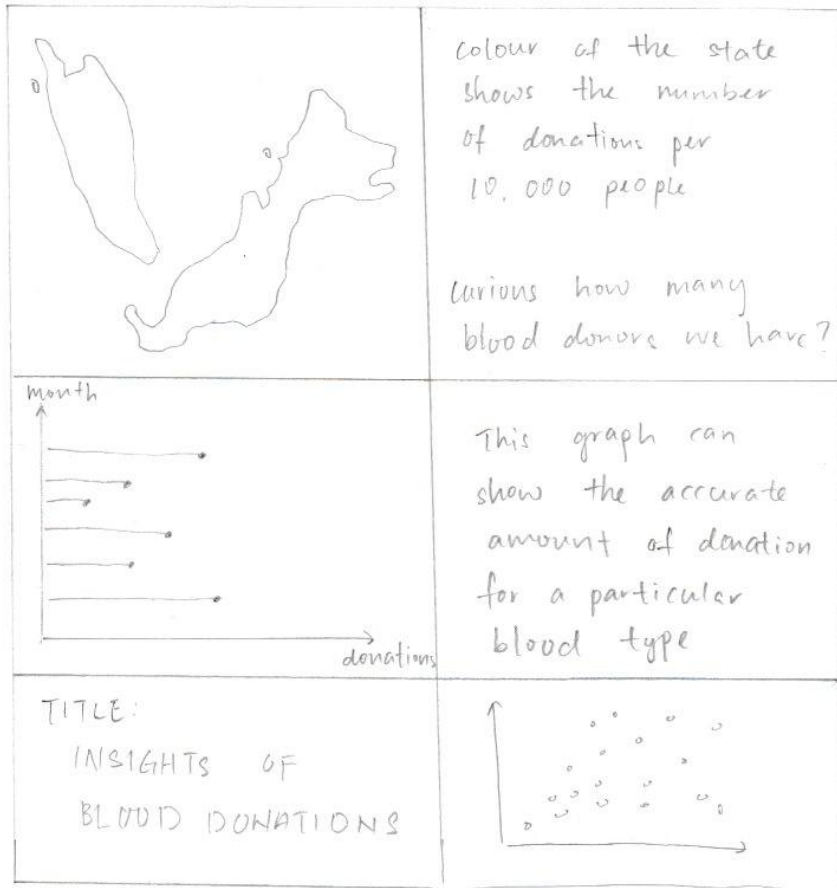 colour of the state
shows the number
of donations per
10.000 people
curious how many
blood donors we have?
month
donations
This graph can
show the accurate
amount of donation
for a particular
blood type
TITLE:
INSIGHTS OF
BLOOD DONATIONS